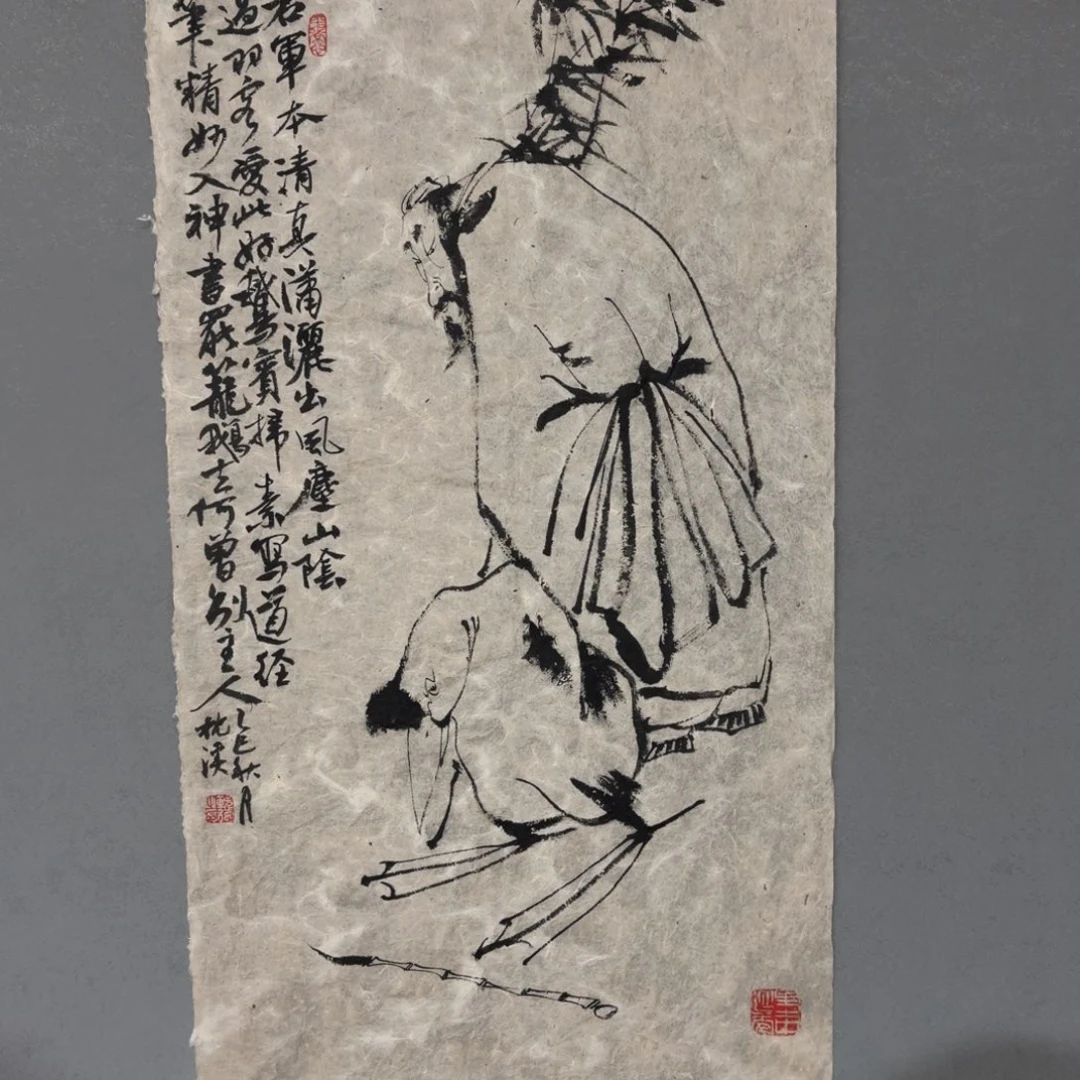 右軍本清真瀟灑出風塵山陰
過羽客愛此好鵞賓掃素寫道經
筆精妙入神書罷籠鵝去何曾別主人
乙巳秋月
枕溪